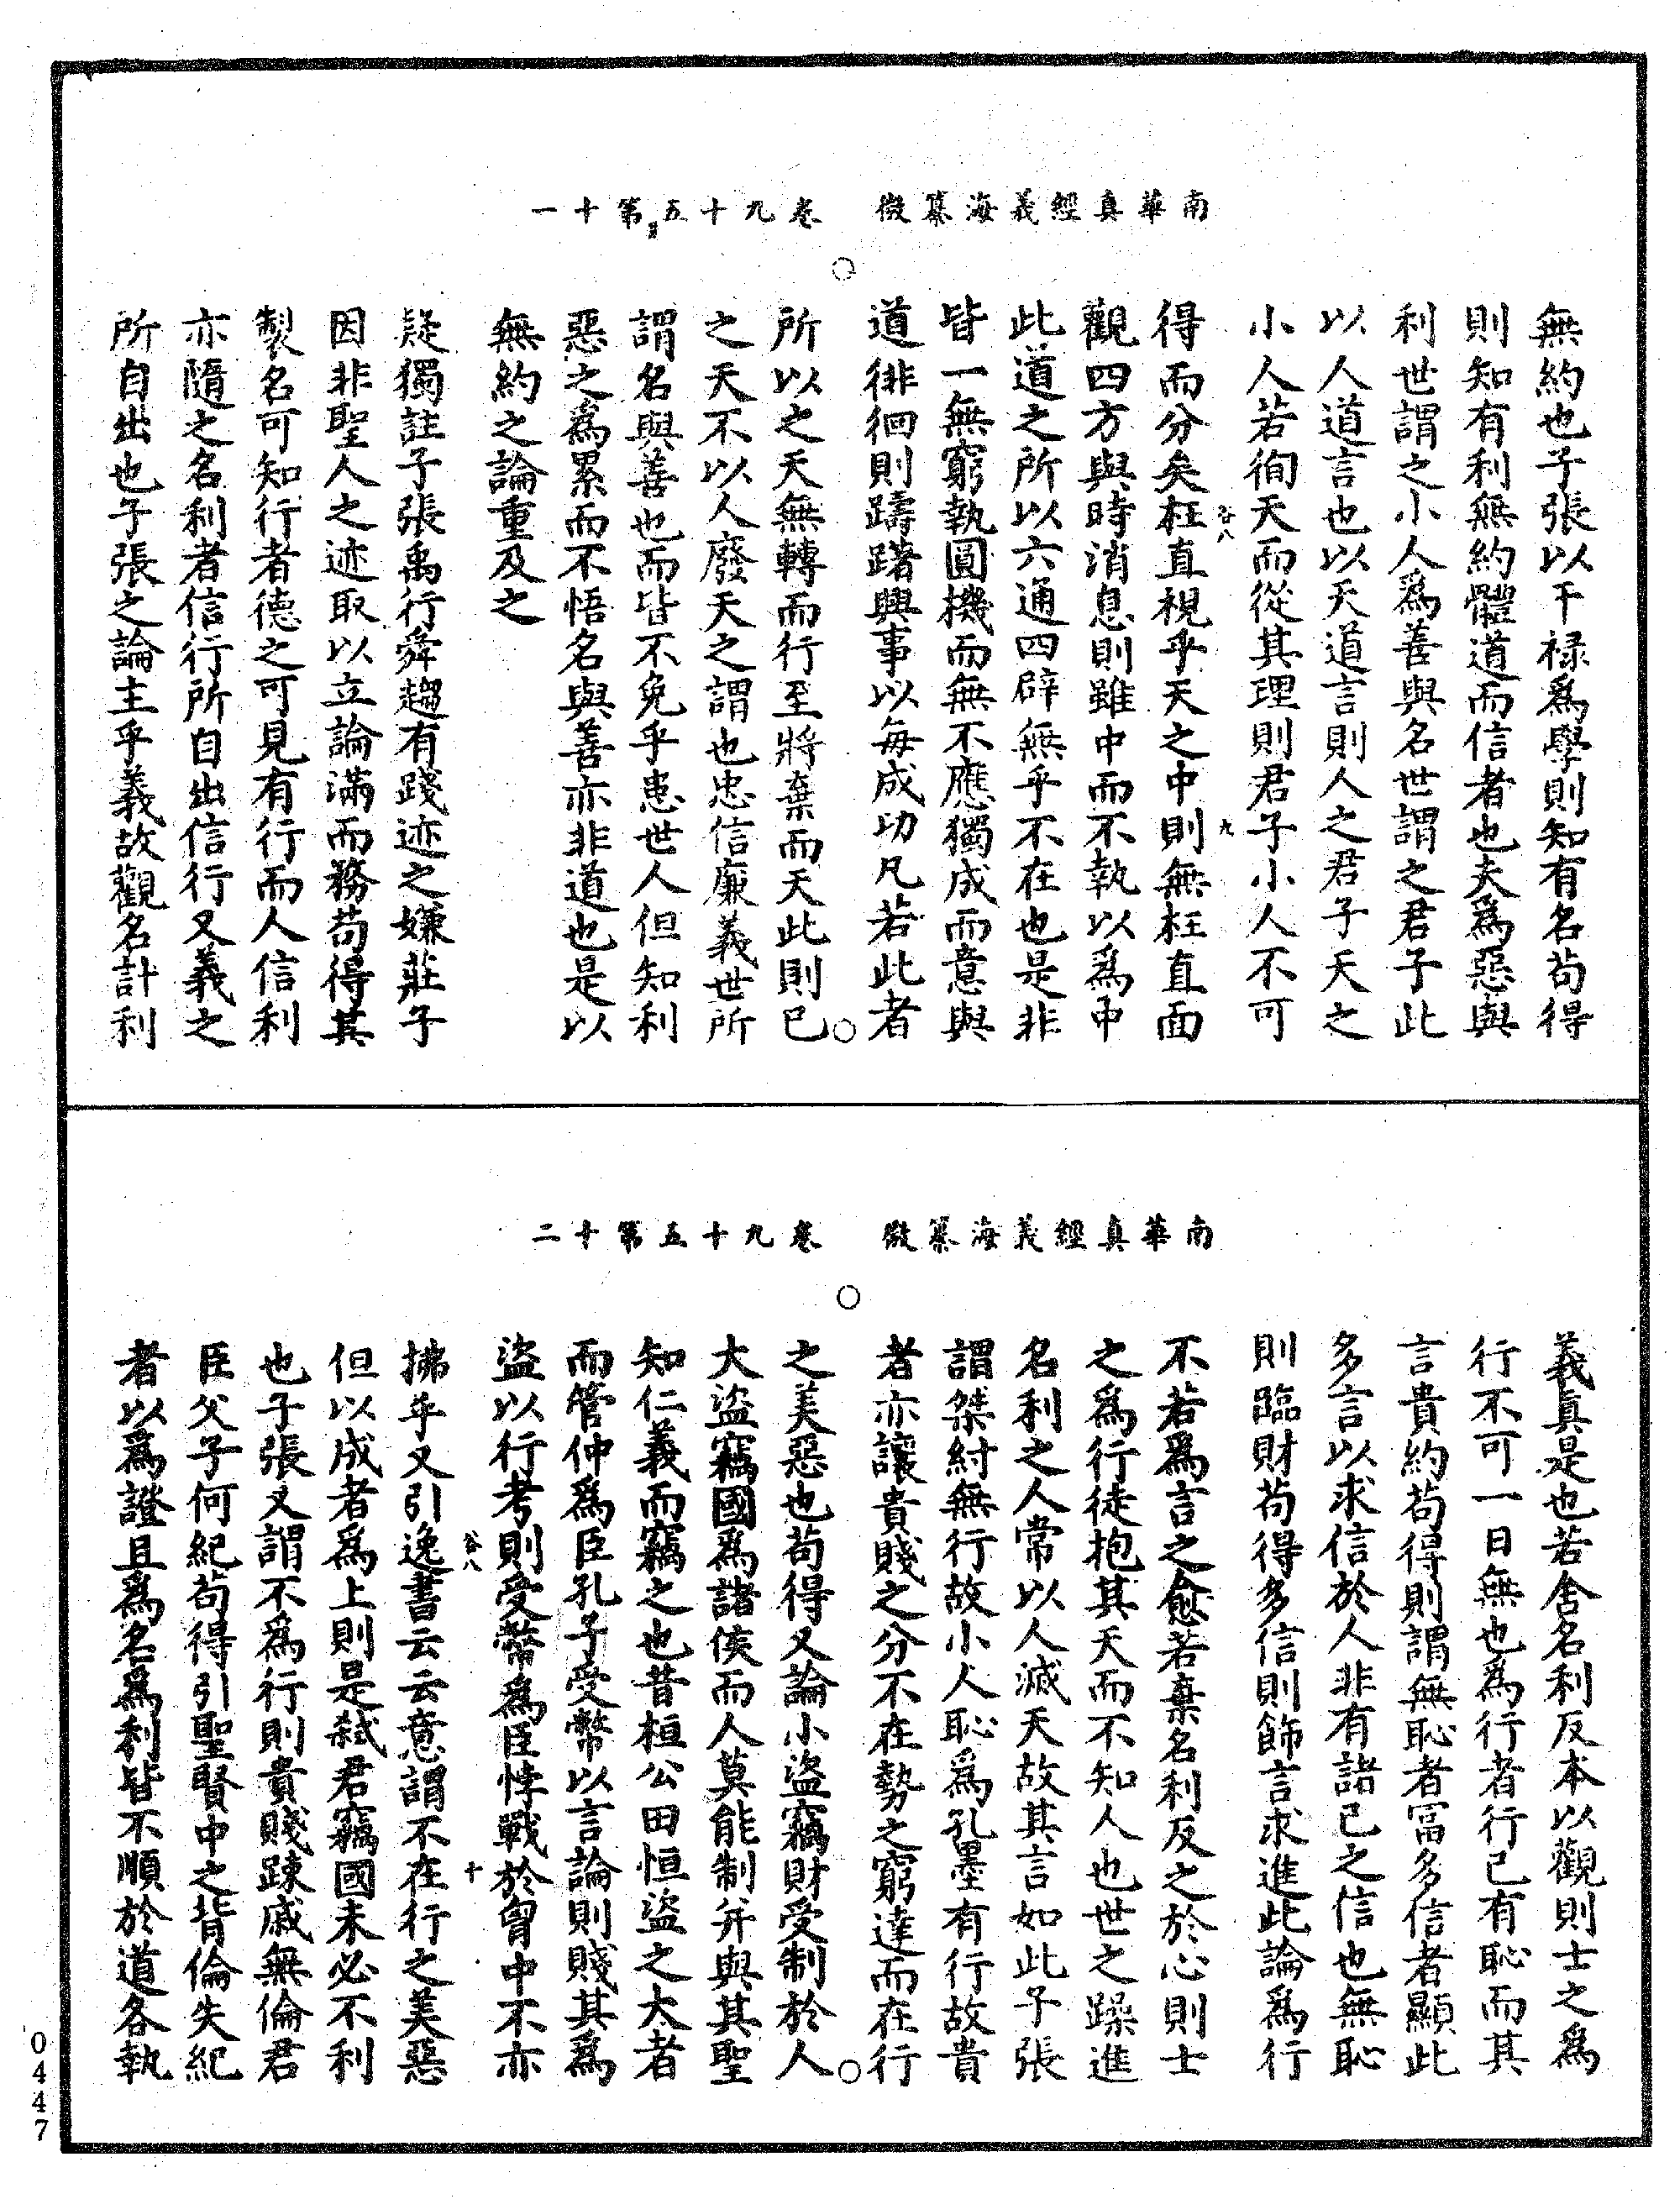 南華真經義海纂微　卷九十五第十一
無約也子張以干祿爲學則知有名苟得
則知有利無約體道而信者也夫爲惡與
利世謂之小人爲善與名世謂之君子此
以人道言也以天道言則人之君子天之
小人若徇天而從其理則君子小人不可
谷八　九
得而分矣枉直視乎天之中則無枉直面
觀四方與時消息則雖中而不執以爲中
此道之所以六通四辟無乎不在也是非
皆一無窮執圓機而無不應獨成而意與
道徘徊則躊躇興事以每成功凡若此者
所以之天無轉而行至將棄而天此則已
之天不以人廢天之謂也忠信廉義世所
謂名與善也而皆不免乎患世人但知利
惡之爲累而不悟名與善亦非道也是以
無約之論重及之
疑獨註子張禹行舜趨有踐迹之嫌莊子
因非聖人之迹取以立論滿而務苟得其
製名可知行者德之可見有行而人信利
亦隨之名利者信行所自出信行又義之
所自出也子張之論主乎義故觀名計利
南華真經義海纂微　卷九十五第十二
義真是也若舍名利反本以觀則士之爲
行不可一日無也爲行者行己有恥而其
言貴約苟得則謂無恥者富多信者顯此
多言以求信於人非有諸己之信也無恥
則臨財苟得多信則飾言求進此論爲行
不若爲言之愈若棄名利反之於心則士
之爲行徒抱其天而不知人也世之躁進
名利之人常以人滅天故其言如此子張
謂桀紂無行故小人恥爲孔墨有行故貴
者亦讓貴賤之分不在勢之窮達而在行
之美惡也苟得又論小盜竊財受制於人
大盜竊國爲諸侯而人莫能制并與其聖
知仁義而竊之也昔桓公田恒盜之大者
而管仲爲臣孔子受幣以言論則賤其爲
盜以行考則受幣爲臣悖戰於胷中不亦
谷八　十
拂乎又引逸書云云意謂不在行之美惡
但以成者爲上則是弒君竊國未必不利
也子張又謂不爲行則貴賤踈戚無倫君
臣父子何紀苟得引聖賢中之背倫失紀
者以爲證且爲名爲利皆不順於道各執
0447